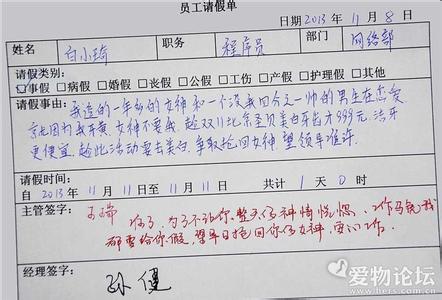 员工请假单
日期 2013 年 11 月 8 日
姓名 白小琦 职务 程序员 部门 网络部
请假类别：
☑事假 □病假 □婚假 □丧假 □公假 □工伤 □产假 □护理假 □其他
请假事由：我追的一年多的女神和一个没我四分之一帅的男生在恋爱
就因为我牙黄，女神不要我，趁双11北京圣贝美白牙齿才999元，洁牙
更便宜，趁此活动要去美白，争取抢回女神，望领导准许。
请假时间：
自 2013 年 11 月 11 日至 11 月 11 日 共计 1 天 0 时
主管签字：
准了，为了不让你整天 神情恍惚，工作马虎，我
都要给你假，望早日抢回你的女神，安心工作。
经理签字： 孙健
爱物论坛
www.it.hers.com.cn